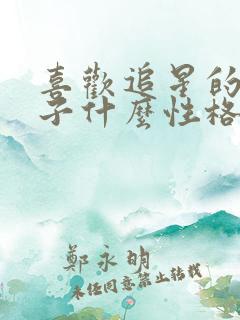 喜歡追星的
子什麼性格
鄭永明
未經同意禁止轉載